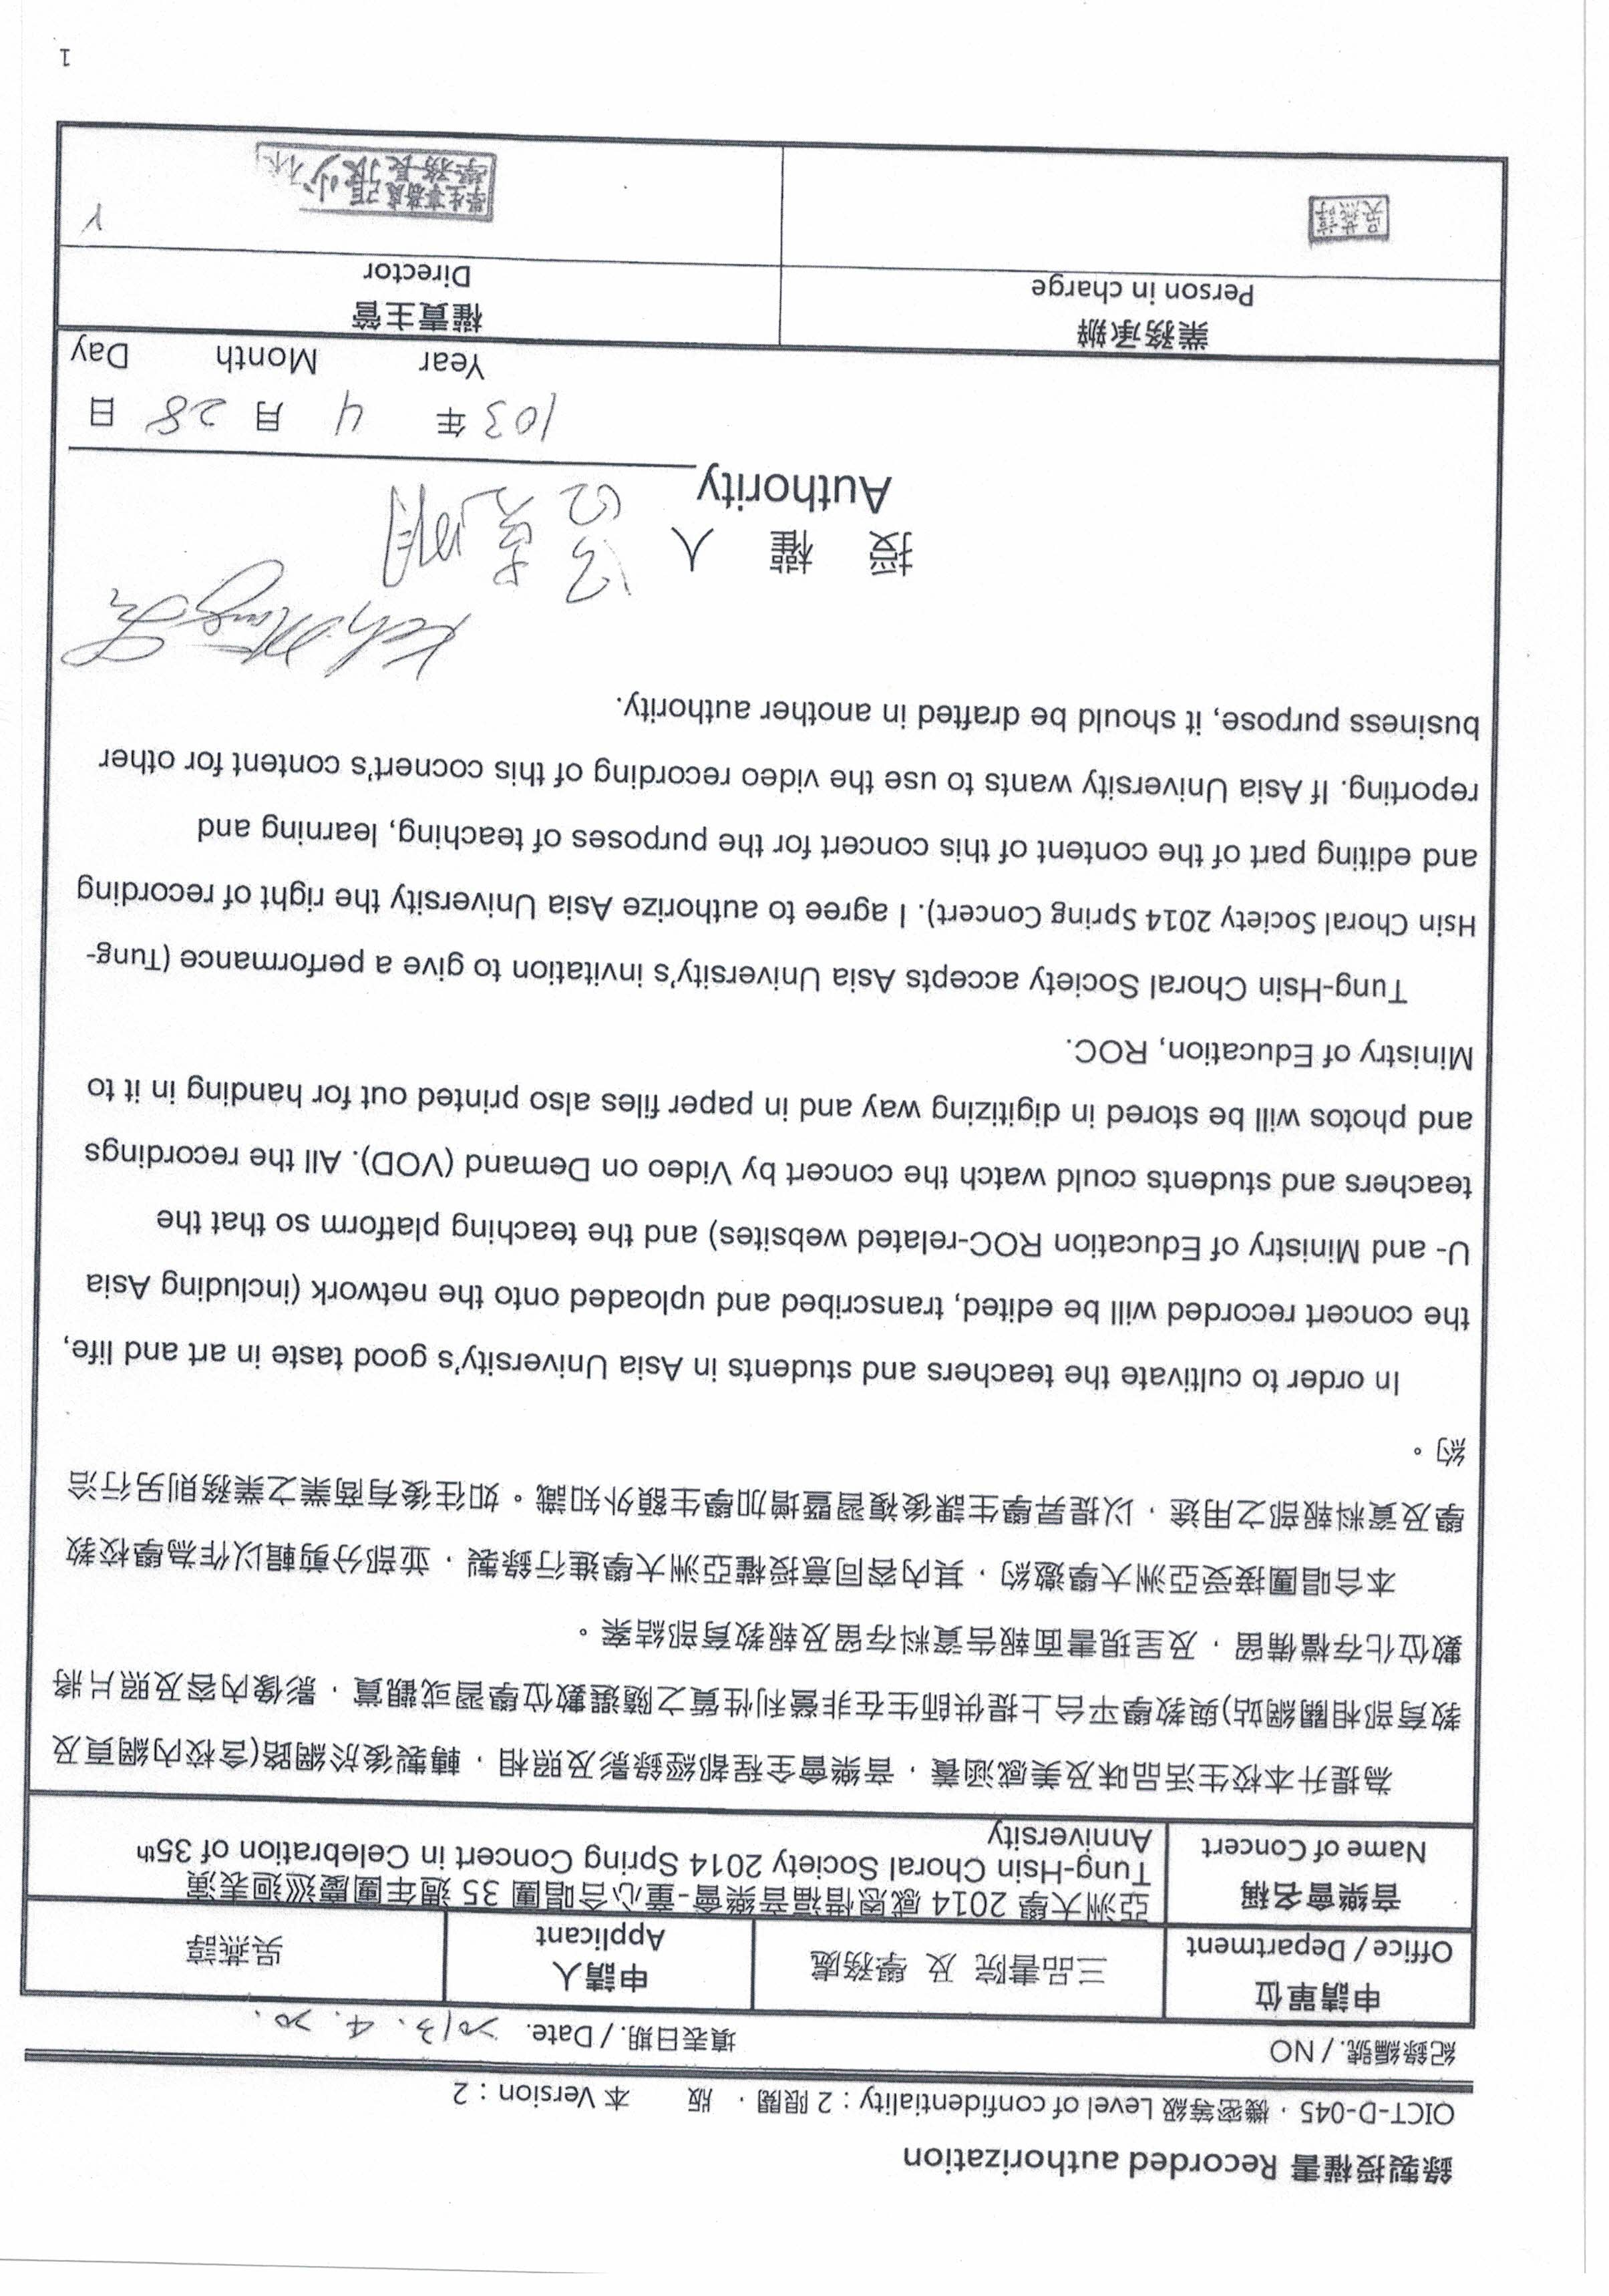 錄製授權書 Recorded authorization
OICT-D-045，機密等級 Level of confidentiality：2 限閱， 版 本 Version：2
紀錄編號. / NO 填表日期. / Date. 2013. 4. 20.
申請單位 Office / Department 三品書院 及 學務處 申請人 Applicant 吳燕諄
音樂會名稱 Name of Concert
亞洲大學 2014 感恩惜福音樂會-童心合唱團 35 週年團慶巡迴表演
Tung-Hsin Choral Society 2014 Spring Concert in Celebration of 35th
Anniversity
為提升本校生活品味及美感涵養，音樂會全程都經錄影及照相，轉製後於網路(含校內網頁及
教育部相關網站)與教學平台上提供師生在非營利性質之隨選數位學習或觀賞，影像內容及照片將
數位化存檔備留，及呈現書面報告資料存留及報教育部結案。
本合唱團接受亞洲大學邀約，其內容同意授權亞洲大學進行錄製，並部分剪輯以作為學校教
學及資料報部之用途，以提昇學生課後複習暨增加學生額外知識。如往後有商業之業務則另行洽
約。
In order to cultivate the teachers and students in Asia University's good taste in art and life,
the concert recorded will be edited, transcribed and uploaded onto the network (including Asia
U- and Ministry of Education ROC-related websites) and the teaching platform so that the
teachers and students could watch the concert by Video on Demand (VOD). All the recordings
and photos will be stored in digitizing way and in paper files also printed out for handing in it to
Ministry of Education, ROC.
Tung-Hsin Choral Society accepts Asia University's invitation to give a performance (Tung-
Hsin Choral Society 2014 Spring Concert). I agree to authorize Asia University the right of recording
and editing part of the content of this concert for the purposes of teaching, learning and
reporting. If Asia University wants to use the video recording of this cocnert's content for other
business purpose, it should be drafted in another authority.
授 權 人
Authority
103 年 4 月 28 日
Year Month Day
業務承辦 權責主管
Person in charge Director
吳燕諄
學生事務處
學務長 張少
1